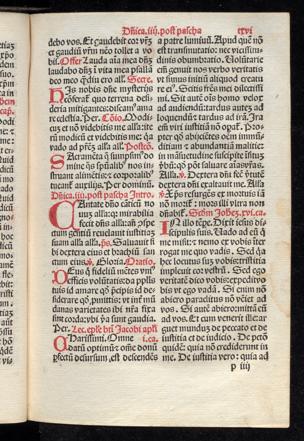 Dñica.iiij.post pascha
cxvi
debo vos. Et gaudebit cor vr̄m
et gaudiū vr̄m nēo tollet a vo
bis. Offer Lauda aīa mea dn̄ʒ
laudabo dn̄ʒ ī vita mea psallā
deo meo qᷓdiu ero. all'. Secre.
His nobis dn̄e mysterijs
cōferať quo terrena desi-
deria mitigantes: discamꝰ ama
re celestia. Per. Cōio. Modi-
cuʒ et nō videbitis me alla: ite
rum modicū et videbitis me: qꝛ
vado ad prēʒ alla alla. Postcō.
Sacramēta q̄ sumpsimꝰ dn̄e
et spūalibꝰ nos in-
staurent alimētis: et corporalibꝰ
tueant auxilijs. Per dominū.
Dn̄ica.iiij.post pascha Intro.
Cantate dn̄o cāticū no
uuʒ alla: qꝛ mirabilia
fecit dn̄s alla: añ ꝯspe
ctum gētiū reuelauit iusticiaʒ
suam alla alla. ps. Saluauit si
bi dextera eius: et brachiū san
ctum eius. Gloria. Oratio.
Deus q̄ fideliū mētes vniꝰ
efficis voluntatis: da pplis
tuis id amare qd̓ ꝑcipis id de-
siderare qd̓ ꝓmittis: vt inť mū
danas varietates ibi nr̄a fixa
sint corda: vbi ꝟa sunt gaudia.
Per. Lec. epl̓e bt̄i Jacobi apl̓i
Carissimi. Omne i.ca.
datū optimuʒ: et omne donū
ꝑfectū desursum est descendēs
a patre luminū. Apud quē nō
est transmutatio: nec vicissitu-
dinis obumbratio. Voluntarie
em̄ genuit nos verbo veritatis
vt simus initiū aliquod creatu
re eiꝰ. Scitis frēs mei dilectissi
mi. Sit autē oīs homo velox
ad audiendū: tardus autē ad
loquenduʒ: et tardus ad irā. Ira
em̄ viri iustitiā nō opať. Prop
ter qd̓ abijcientes oēm immūdi
ciam et abundantiā malitie:
in māsuetudine suscipite īsituʒ
verbū: qd̓ pōt saluare aīas vr̄as.
Alla. ℣. Dextera dn̄i fecit ꝟtutē
dextera dn̄i exaltauit me. Alla
℣. Xp̄s resurgēs ex mortuis iā
nō moriť: mors illi vltra non
dn̄abiť. Scd̓m Johez.xvi.ca.
In illo tp̄e. Dixit iesus di-
scipulis suis. Uado ad eū q
me misit: et nemo ex vobis īter
rogat me quo vadis. Sed qꝛ
hec locutus suʒ vobis: tristitia
impleuit cor vestrū. Sed ego
veritatē dico vobis: expedit vo
bis vt ego vadā. Si enim nō
abiero paraclitus nō veniet ad
vos. Si autē abiero: mittā eū
ad vos. Et cum venerit ille: ar
guet mundūʒ de peccato et de
iustitia et de iudicio. De pctō
quidē: quia nō crediderunt in
me. De iustitia vero: quia ad
p iiij